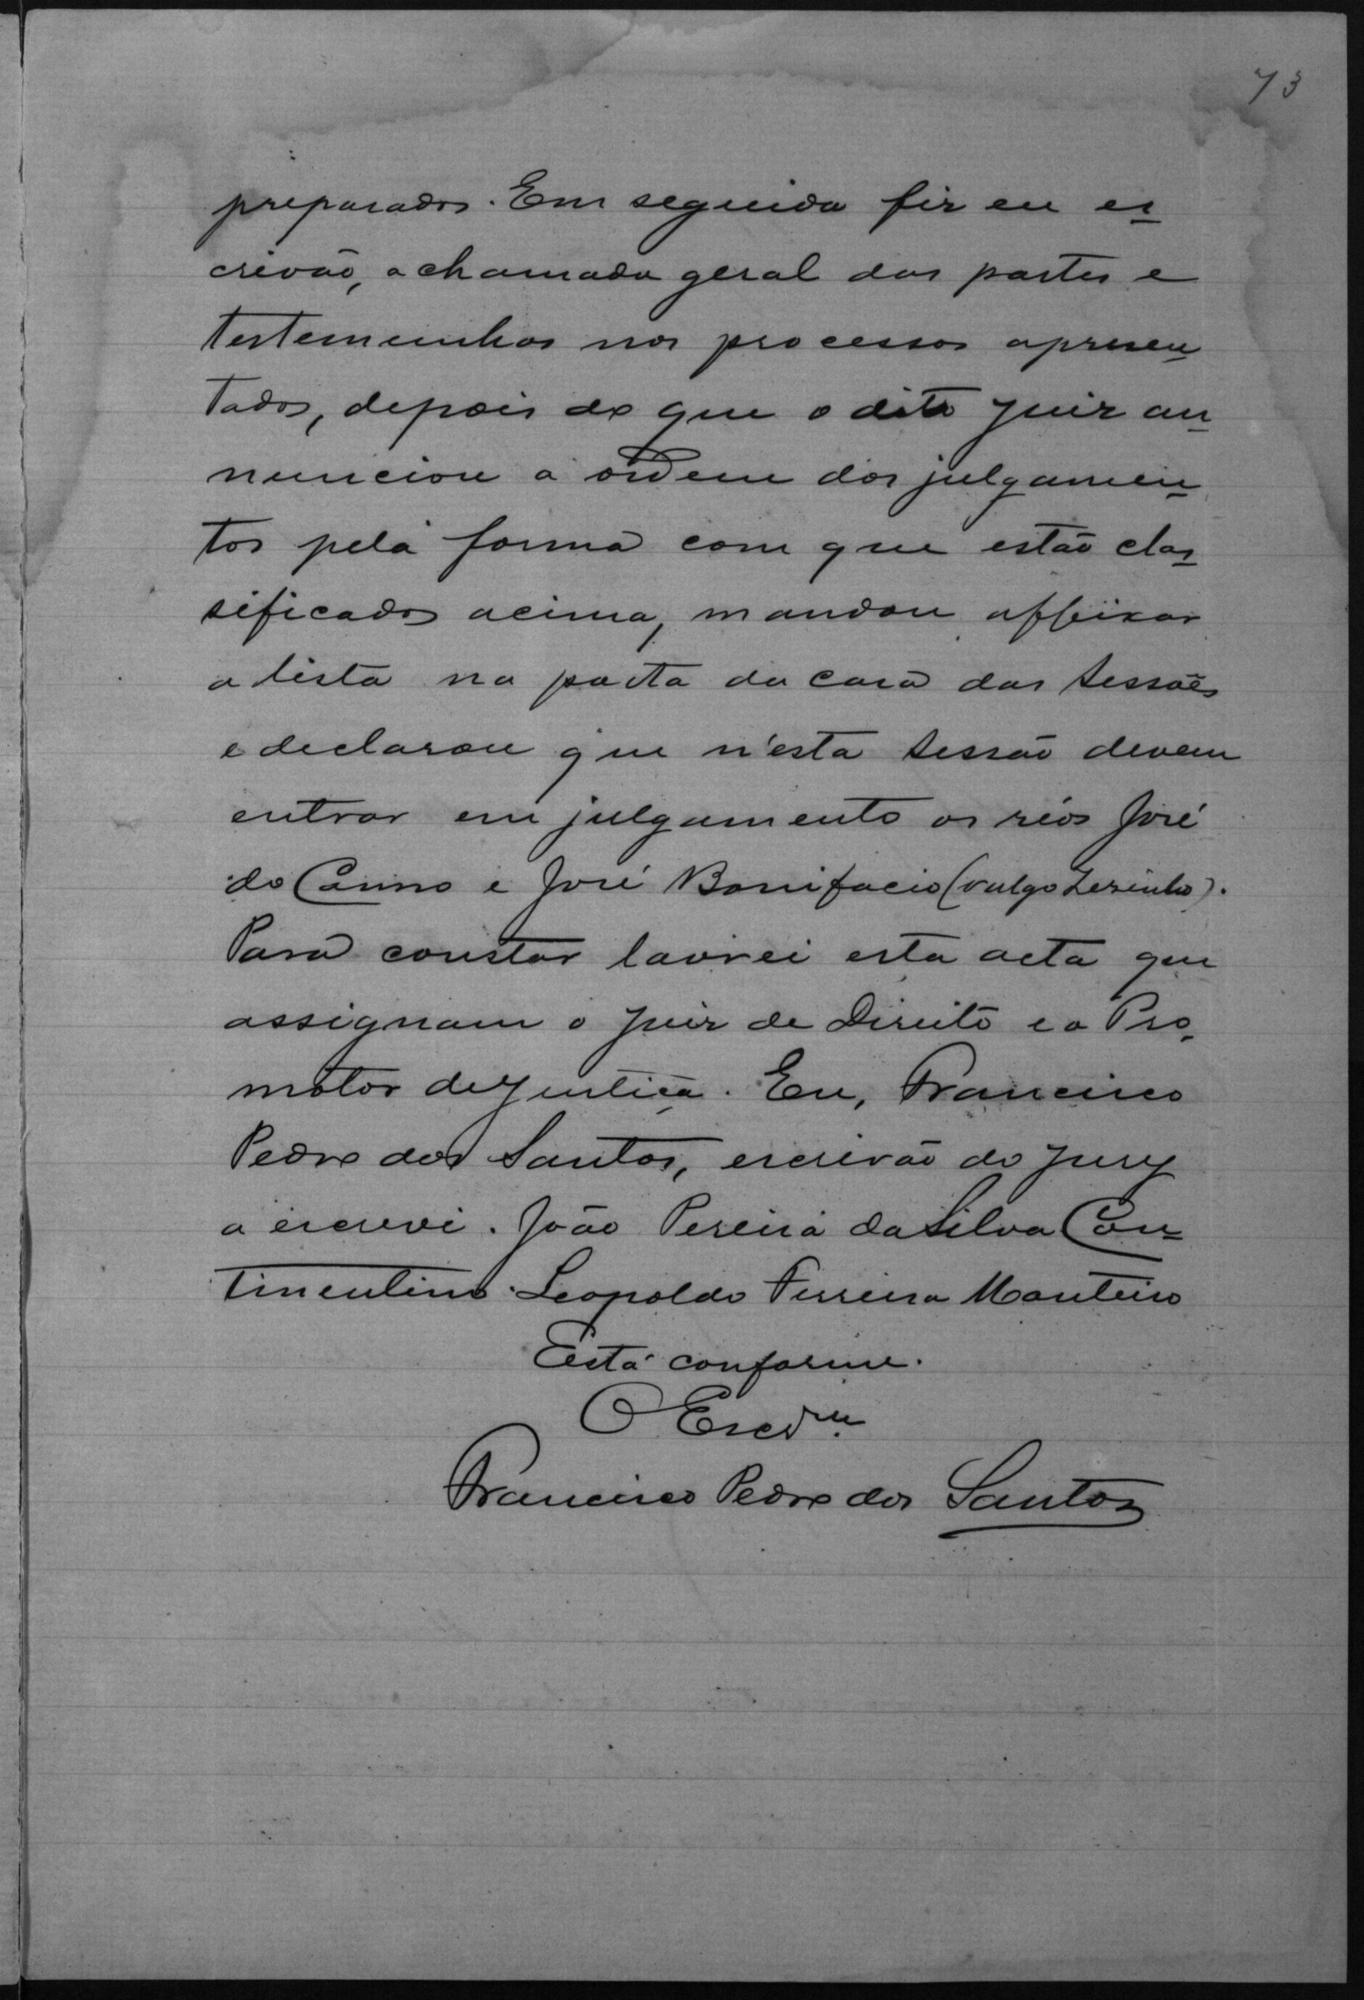 73
preparados. Em seguida fiz eu es-
crivão, a chamada geral das partes e
testemunhas nos processos apresen-
tados, depois do que o dito Juiz an-
nunciou a ordem dos julgamen-
tos pela forma com que estão clas-
sificados acima, mandou affixar
a lista na porta da casa das sessões
e declarou que n'esta sessão devem
entrar em julgamento os réos José
do Carmo e José Bonifacio (vulgo Zezinho).
Para constar lavrei esta acta que
assignam o Juiz de Direito e o Pro-
motor de Justiça. Eu, Francisco
Pedro dos Santos, escrivão do Jury
a escrevi. João Pereira da Silva Con-
tinentino. Leopoldo Ferreira Monteiro
Está conforme.
O Escr.m
Francisco Pedro dos Santos